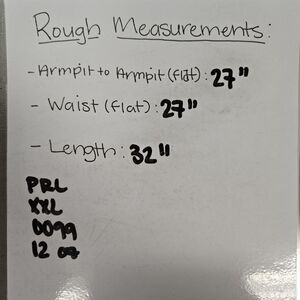 Rough Measurements:
- Armpit to Armpit (flat): 27"
- Waist (flat): 27"
- Length: 32"
PRL
XXL
0099
12 07